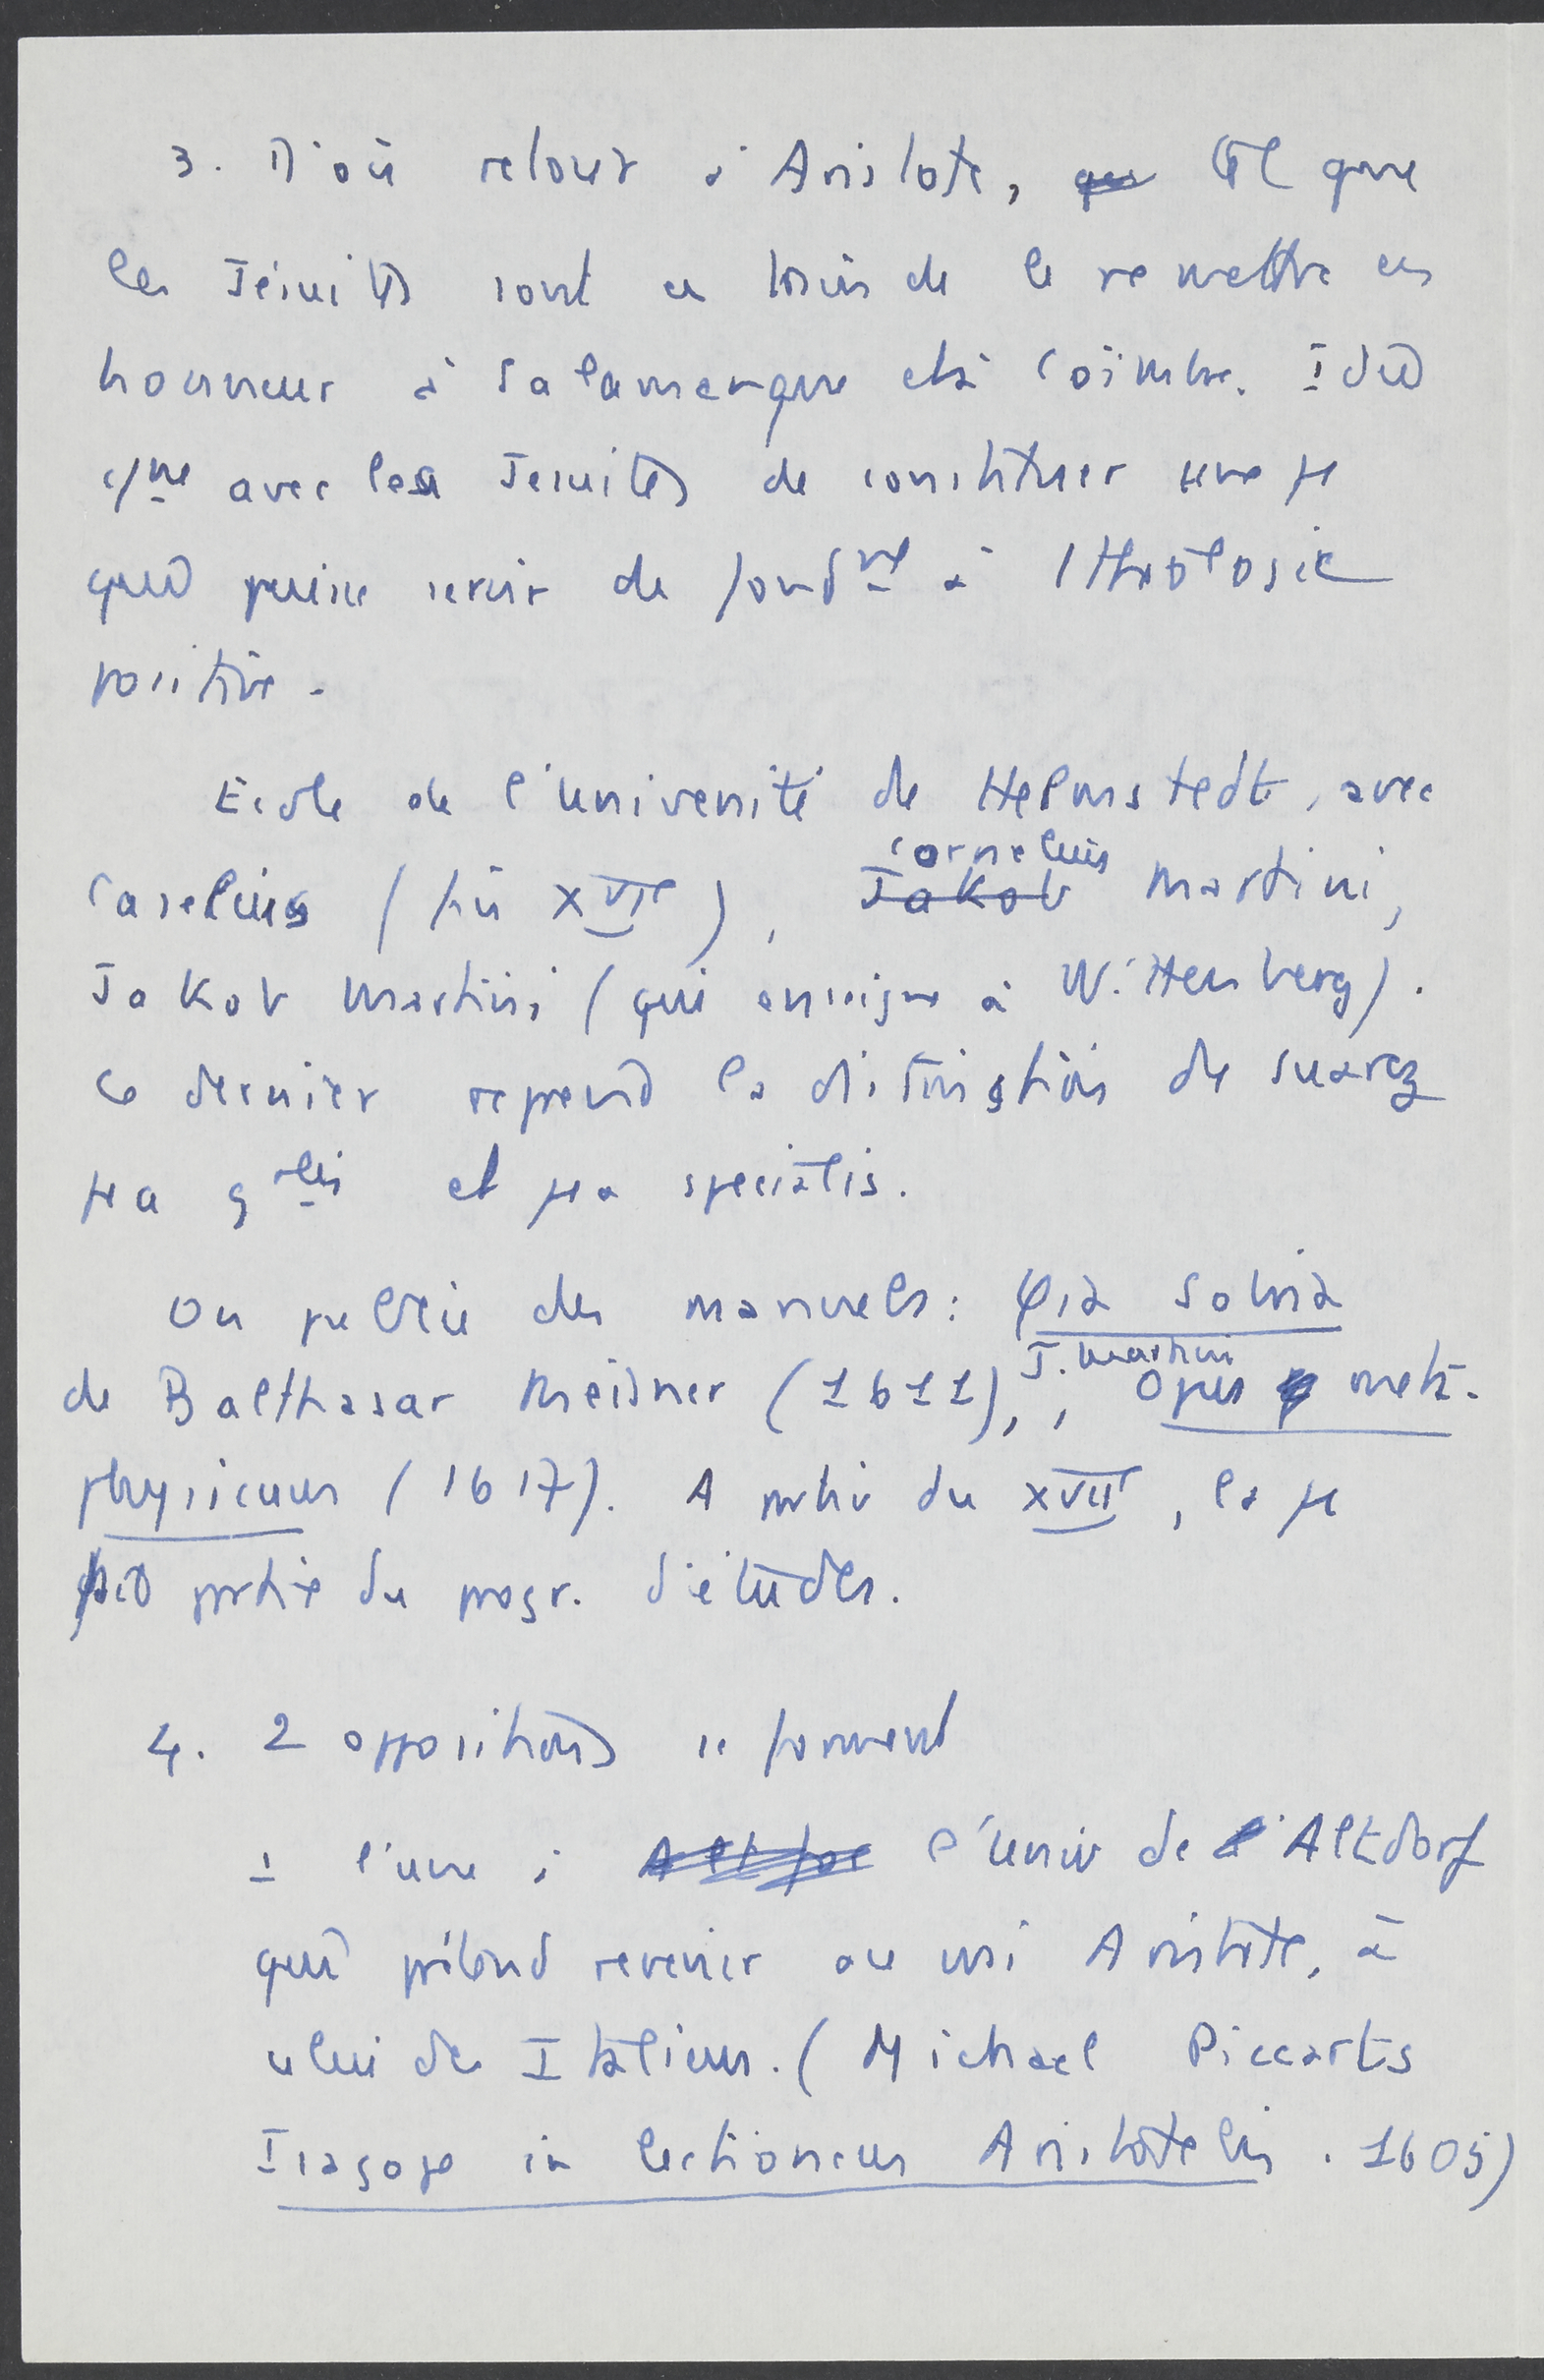 3. D'où retour à Aristote, tel que
les Jésuites sont en train de le remettre en
honneur à Salamanque et à Coïmbre. Il s'agit
c/me avec les Jésuites de constituer une μ
qui puisse servir de fondmt à l théologie
positive.
Ecole de l'université de Helmstedt, avec
Caselius (fin XVIe), Cornelius Martini,
Jakob Martini (qui enseigne à Wittenberg).
Ce dernier reprend la distinction de Suarez
μa gralis et μa specialis.
On publie des manuels : φia sobria
de Balthasar Meisner (1611), J. Martini, Opus meta-
physicum (1617). A partir du XVIIe, la μ
fait partie du progr. d'études.
4. 2 oppositions se forment
- l'une à l'univ de Altdorf
qui prétend revenir au vrai Aristote, à
celui des Italiens. (Michael Piccartis
Isagoge in lectionem Aristotelis. 1605)